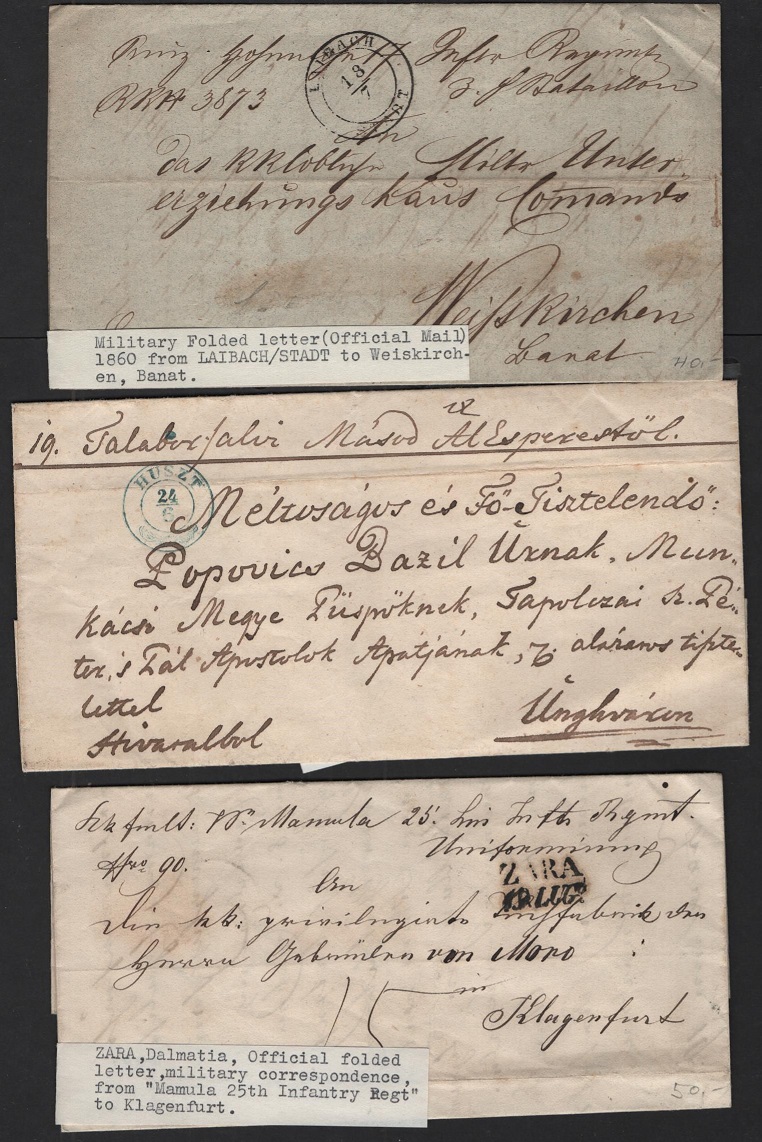 Inftr Regimt
RKH 3873 3. f Bataillon
LAIBACH STADT
18/7
An
das kk löbliche Militr Unter
erziehungs Haus Comando
Weißkirchen
Banat
40.-
Military Folded letter(Official Mail)
1860 from LAIBACH/STADT to Weiskirch-
en, Banat.
19. Talaborfalvi Másod AlEsperestöl.
HUSZT
24/6
Méltoságos és Fö-Tisztelendö:
Popovics Bazil Úrnak, Mun-
kácsi Megye Püspöknek, Tapolczai sz. Pé-
ter, s Pál Apostolok Apátjának, alázatos tiszte-
lettel
Hivatalbol Unghváron
kk fmlt: Mamula 25: Lin Inftr Rgmt.
Uniformirung
Nro 90.
ZARA
19. LUG.
An
Die kk: privilegirte Tuchfabrik der
Herrn Gebrüder von Moro
in
15
Klagenfurt
50.-
ZARA,Dalmatia, Official folded
letter,military correspondence,
from "Mamula 25th Infantry Regt"
to Klagenfurt.